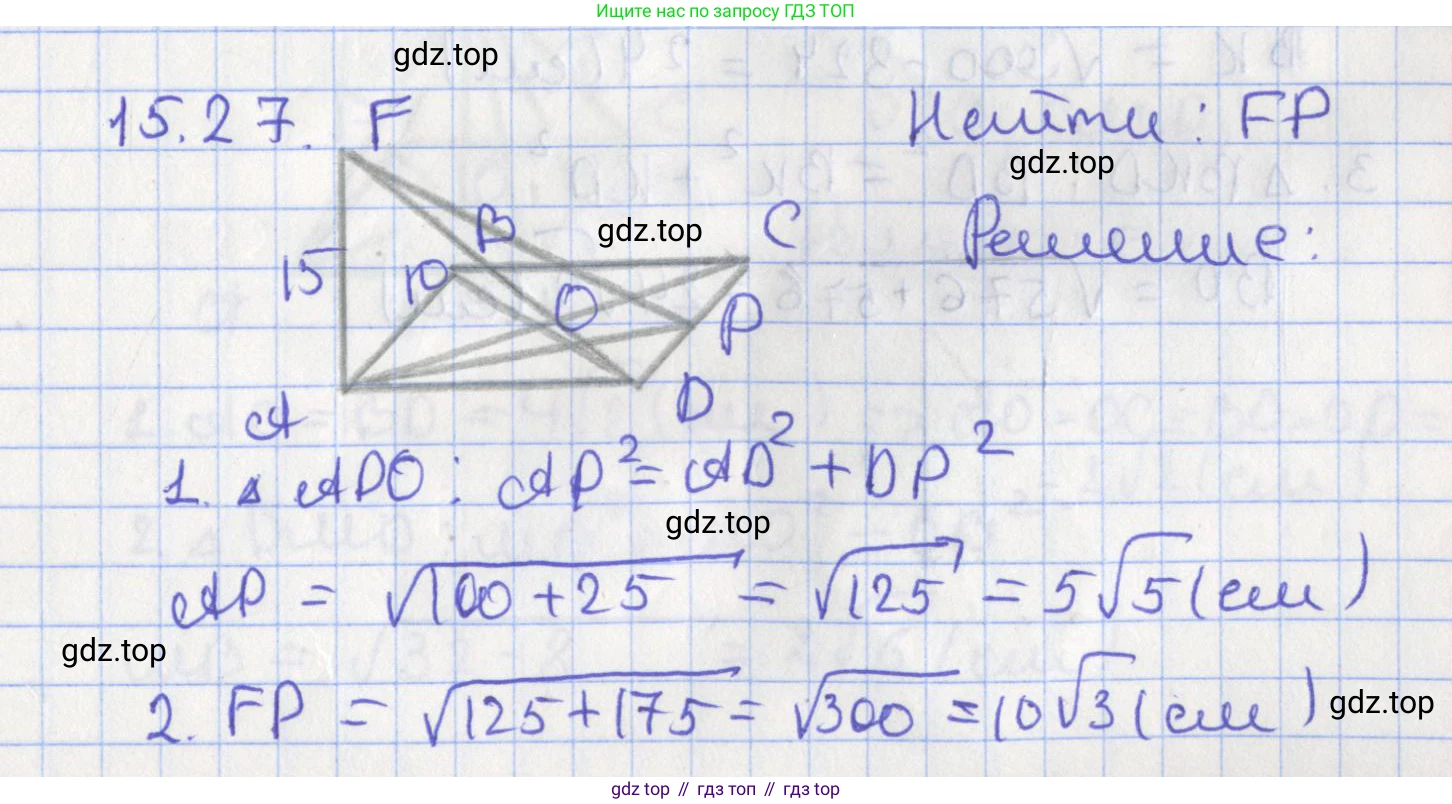 Ищите нас по запросу ГДЗ ТОП
gdz.top
15.27. F
Найти: FP
gdz.top
B
gdz.top
C
Решение:
15
10
O
P
A
D
1. △ ADO: AP² = AD² + DP²
gdz.top
AP = √100+25 = √125 = 5√5 (см)
gdz.top
2. FP = √125+175 = √300 = 10√3 (см)
gdz.top
gdz.top // гдз топ // гдз top